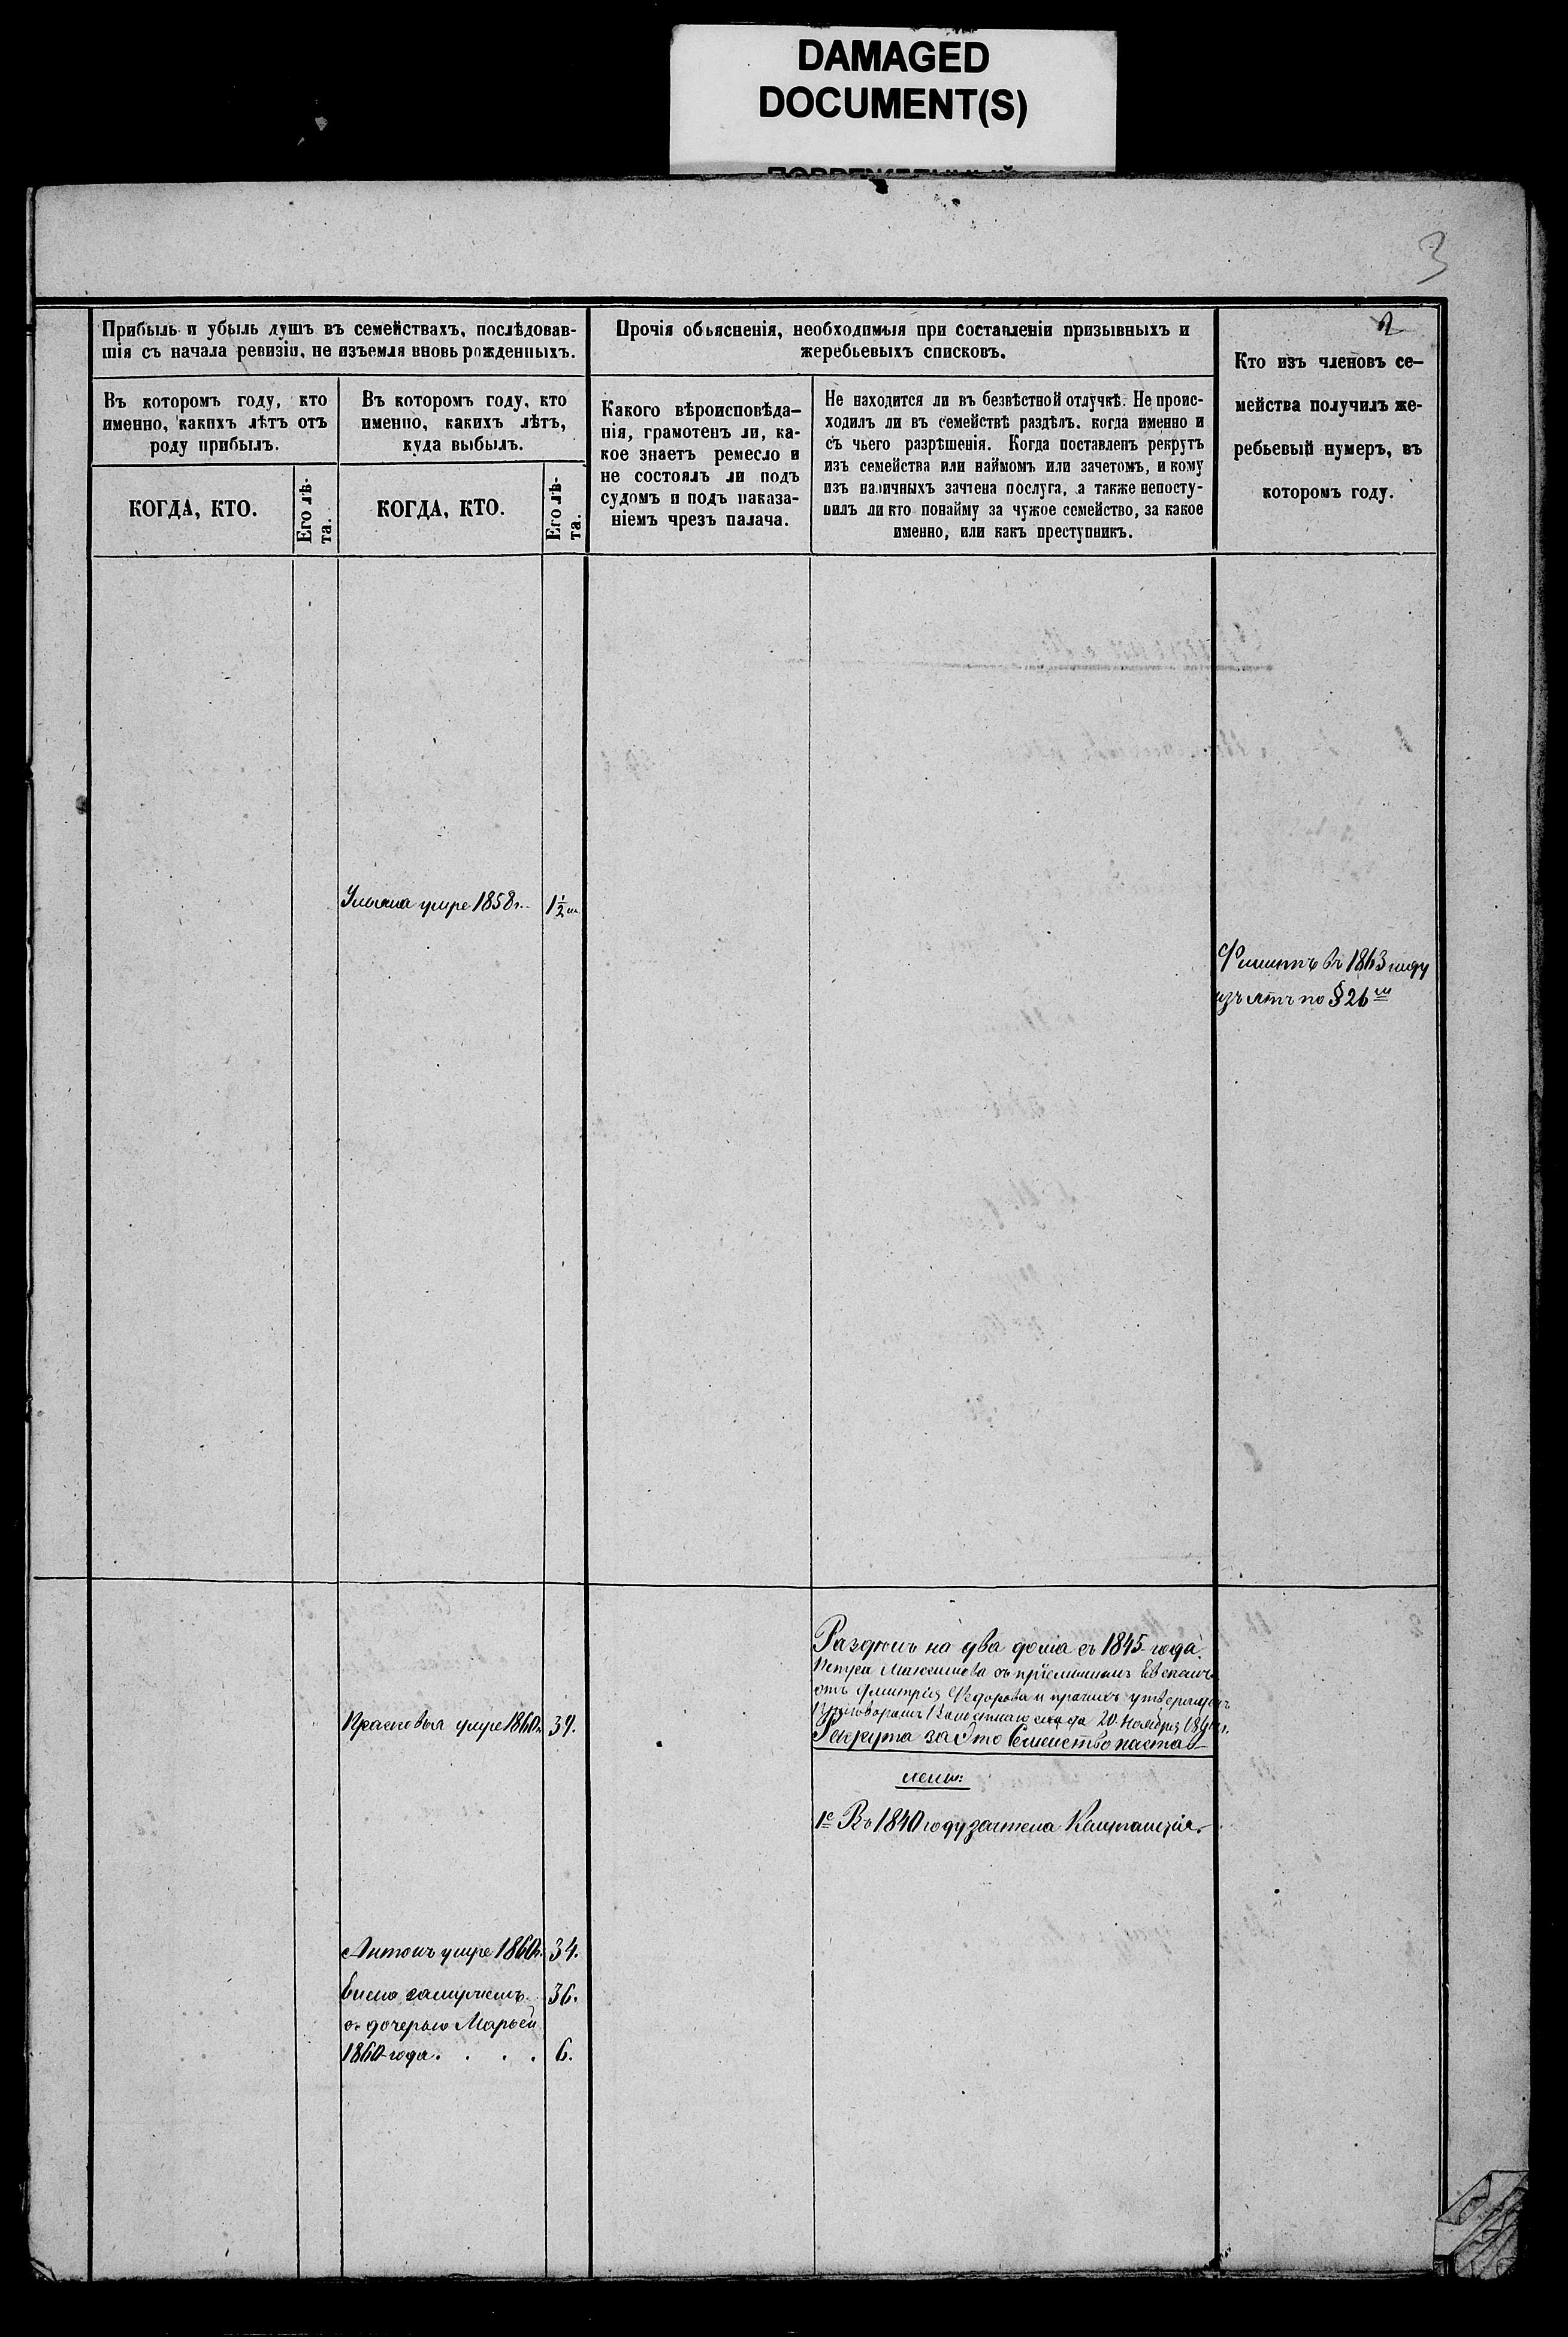 DAMAGED
DOCUMENT(S)
3
2
Прибыль и убыль душъ въ семействахъ, послѣдовав-
шія съ начала ревизіи, не изъемля вновь рожденныхъ.
Въ которомъ году, кто
именно, какихъ лѣтъ отъ
роду прибылъ.
КОГДА, КТО.
Его лѣ-
та.
Въ которомъ году, кто
именно, какихъ лѣтъ,
куда выбылъ.
КОГДА, КТО.
Его лѣ-
та.
Прочія обьясненія, необходимыя при составленіи призывныхъ и
жеребьевыхъ списковъ.
Какого вѣроисповѣда-
нія, грамотенъ ли, ка-
кое знаетъ ремесло и
не состоялъ ли подъ
судомъ и подъ наказа-
ніемъ чрезъ палача.
Не находится ли въ безвѣстной отлучкѣ. Не проис-
ходилъ ли въ семействѣ раздѣлъ, когда именно и
съ чьего разрѣшенія. Когда поставленъ рекрутъ
изъ семейства или наймомъ или зачетомъ, и кому
изъ наличныхъ зачтена послуга, а также непосту-
пилъ ли кто понайму за чужое семейство, за какое
именно, или какъ преступникъ.
Кто изъ членовъ се-
мейства получилъ же-
ребьевый нумеръ, въ
которомъ году.
умре 1858 г. 1½
Филипъ въ 1863 году
изъятъ по § 26
Раздѣлъ на два дома съ 1845 года.
Максимова съ пріемышомъ
отъ Дмитрія Федорова и прочихъ
приговоромъ 20 Ноября
умре 1860 г. 39.
Рекрута за это Семейство постав-
лены:
1е Въ 1840 году зачтена Квитанція.
Антонъ умре 1860 г. 34.
замужемъ 36.
съ дочерью Марьей
1860 года. . . . 6.